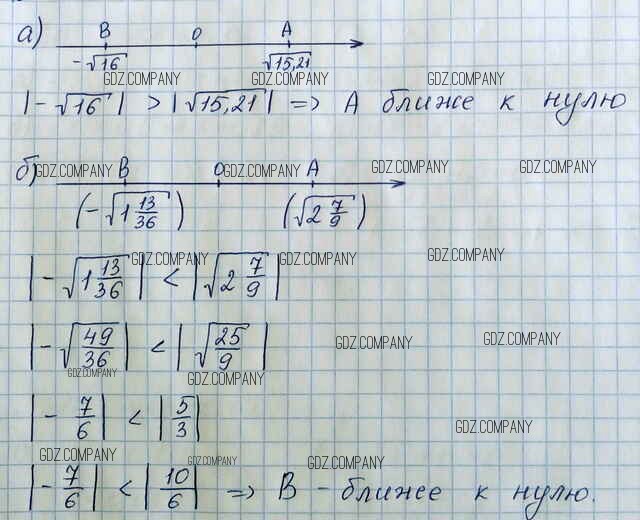 а) B 0 A
-√16 √15,21
GDZ.COMPANY GDZ.COMPANY GDZ.COMPANY
|-√16| > |√15,21| => A ближе к нулю
б) B 0 A
GDZ.COMPANY GDZ.COMPANY GDZ.COMPANY GDZ.COMPANY
(-√1 13/36) (√2 7/9)
GDZ.COMPANY GDZ.COMPANY GDZ.COMPANY
|-√1 13/36| < |√2 7/9|
|-√49/36| < |√25/9|
GDZ.COMPANY GDZ.COMPANY
GDZ.COMPANY GDZ.COMPANY
|-7/6| < |5/3|
GDZ.COMPANY
GDZ.COMPANY GDZ.COMPANY GDZ.COMPANY
|-7/6| < |10/6| => B - ближе к нулю.